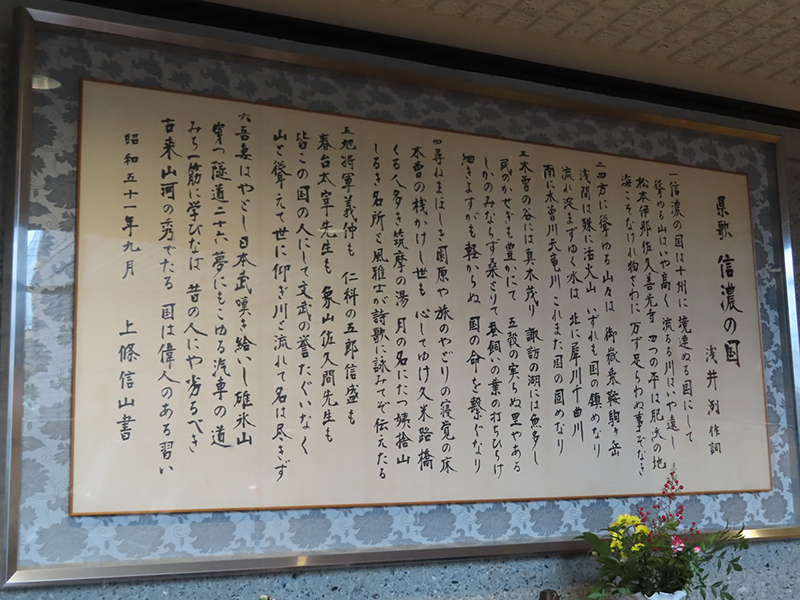 県歌 信濃の国
浅井洌 作詞
一 信濃の国は十州に 境連ぬる国にして
聳ゆる山はいや高く 流るる川はいや遠し
松本伊那佐久善光寺 四つの平は肥沃の地
海こそなけれ物さわに 万ず足らわぬ事ぞなき
二 四方に聳ゆる山々は 御嶽乗鞍駒ヶ岳
浅間は殊に活火山 いずれも国の鎮めなり
流れ淀まずゆく水は 北に犀川千曲川
南に木曽川天竜川 これまた国の固めなり
三 木曽の谷には真木茂り 諏訪の湖には魚多し
民のかせぎも豊かにて 五穀の実らぬ里やある
しかのみならず桑とりて 蚕飼いの業の打ちひらけ
細きよすがも軽からぬ 国の命を繋ぐなり
四 尋ねまほしき園原や 旅のやどりの寝覚の床
木曽の桟かけし世も 心してゆけ久米路橋
くる人多き筑摩の湯 月の名にたつ姨捨山
しるき名所と風雅士が 詩歌に詠みてぞ伝えたる
五 旭将軍義仲も 仁科の五郎信盛も
春台太宰先生も 象山佐久間先生も
皆この国の人にして 文武の誉たぐいなく
山と聳えて世に仰ぎ 川と流れて名は尽きず
六 吾妻はやとし日本武 嘆き給いし碓氷山
穿つ隧道二十六 夢にもこゆる汽車の道
みち一筋に学びなば 昔の人にや劣るべき
古来山河の秀でたる 国は偉人のある習い
昭和五十一年九月 上條信山書